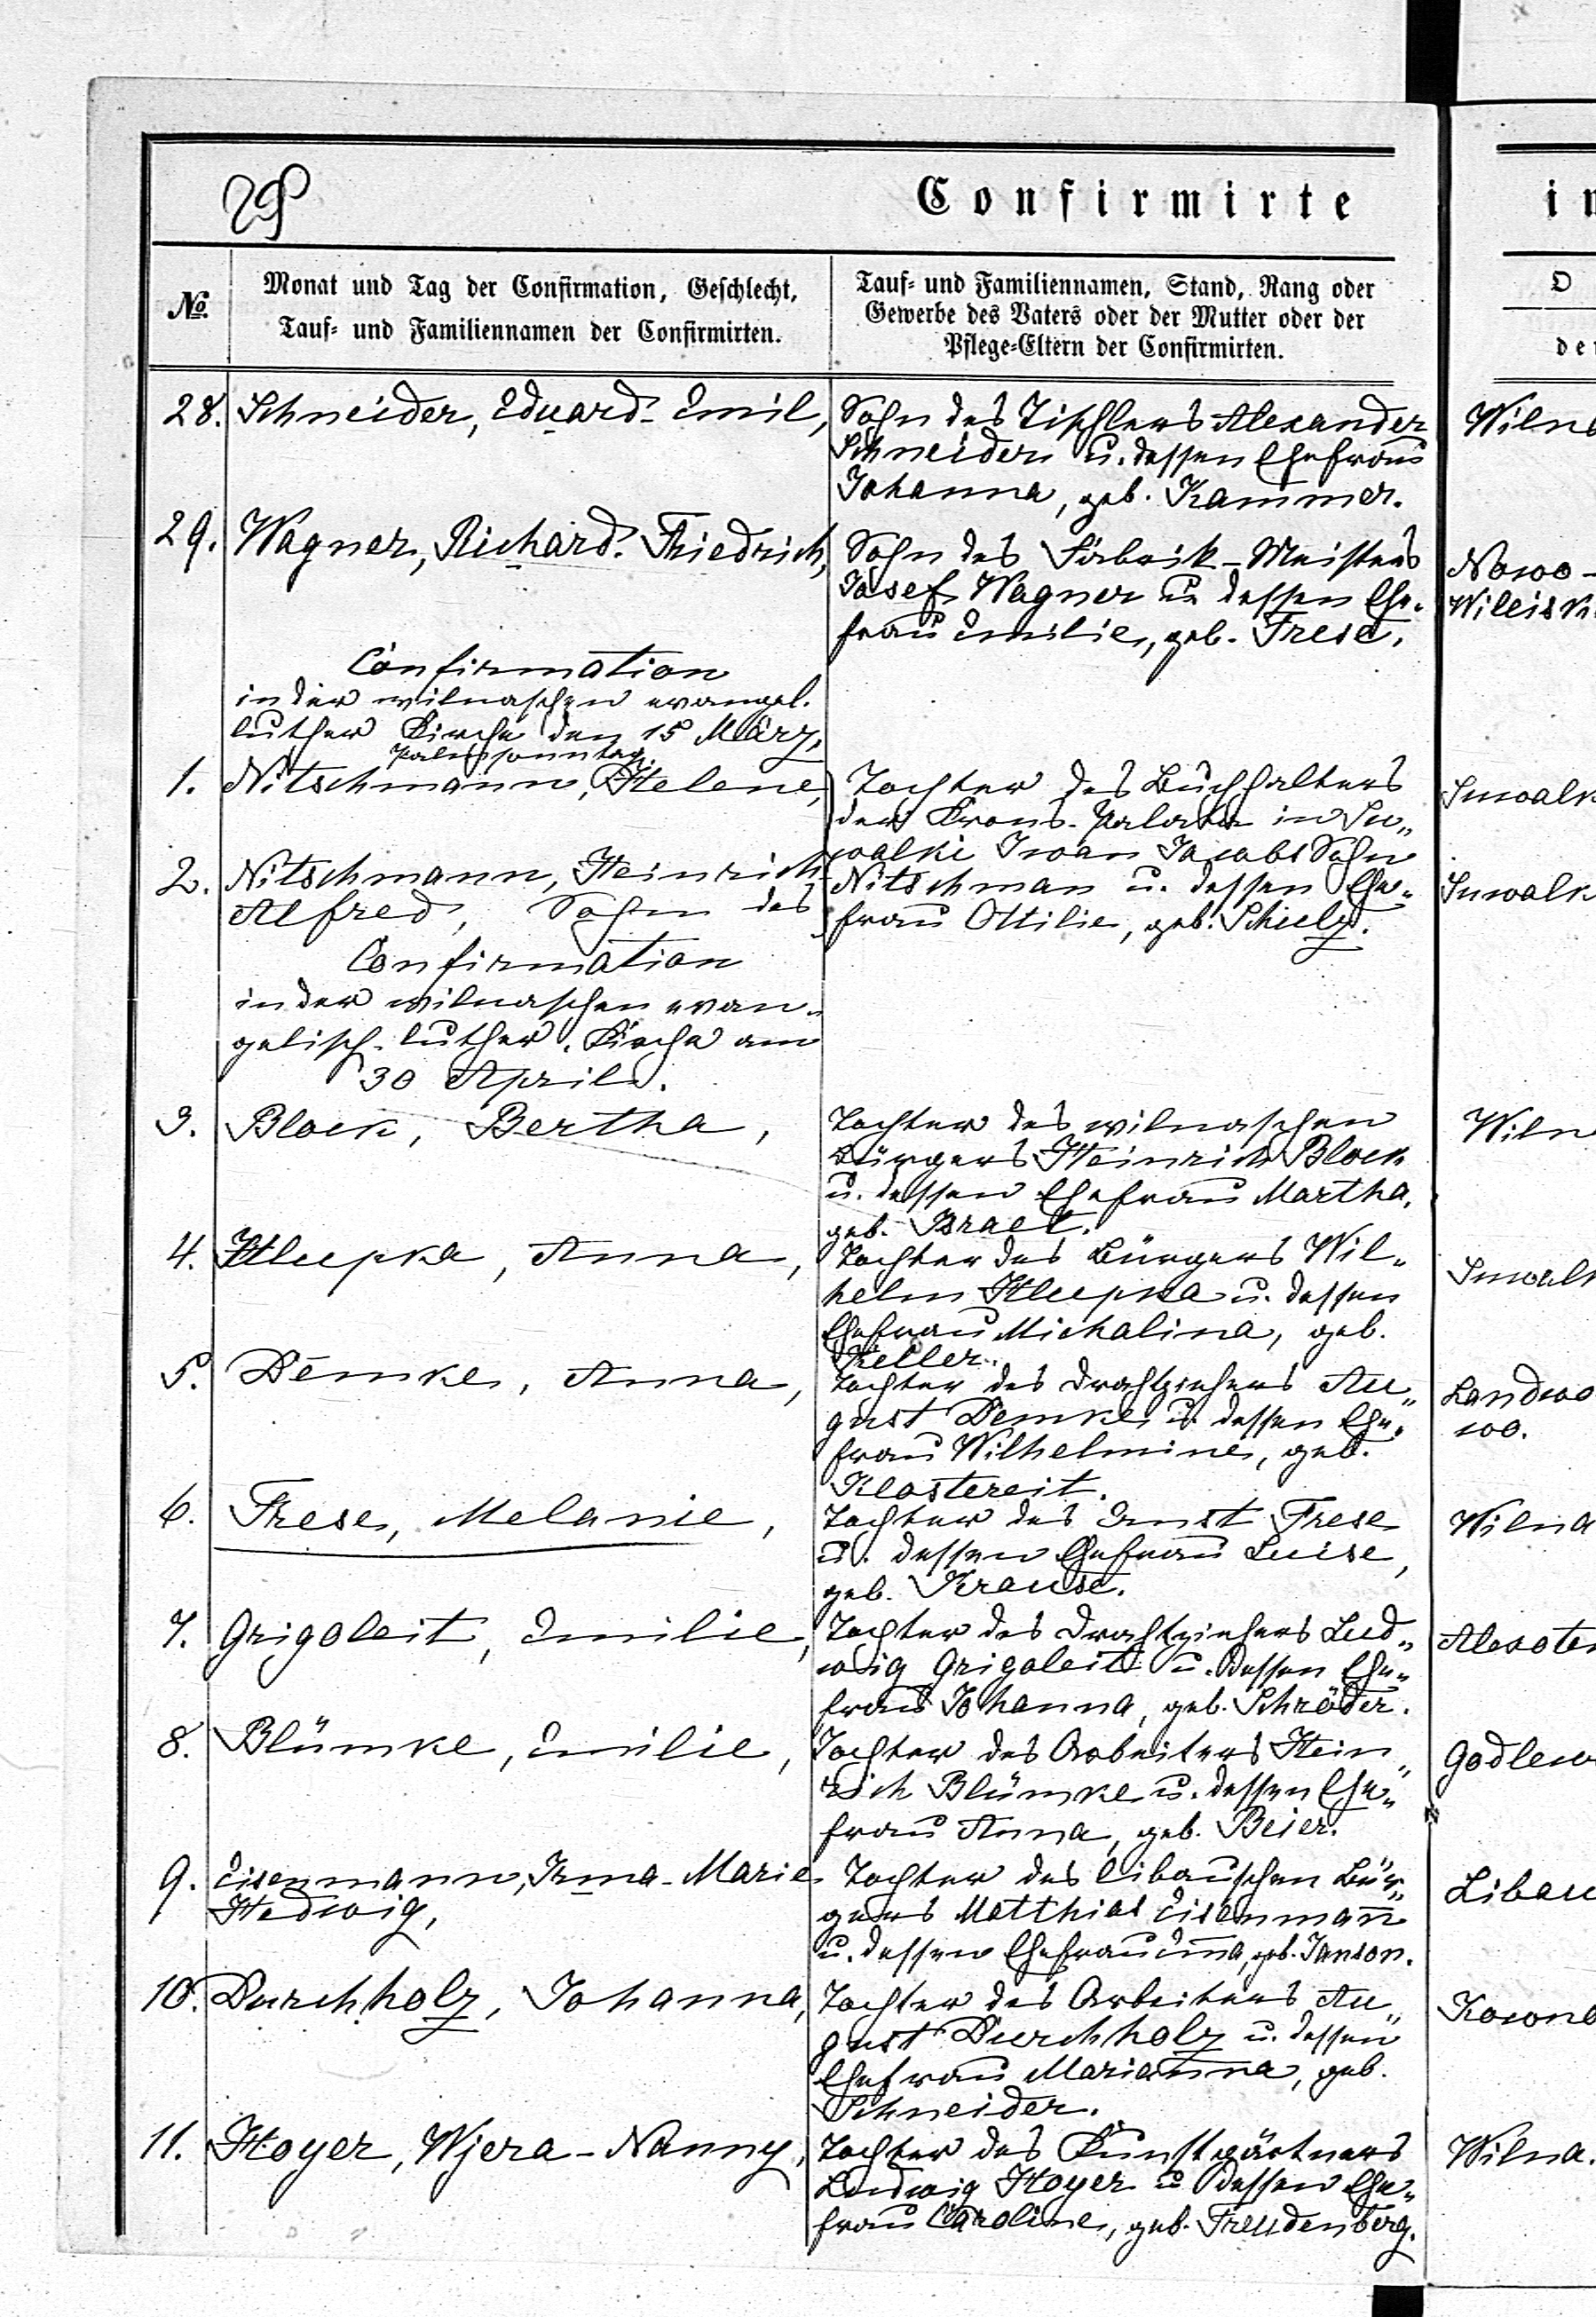 29
Confirmirte
in
№
Monat und Tag der Confirmation, Geschlecht,
Tauf- und Familiennamen der Confirmirten.
Tauf- und Familiennamen, Stand, Rang oder
Gewerbe des Vaters oder der Mutter oder der
Pflege-Eltern der Confirmirten.
O
de
28. Schneider, Eduard-Emil,
Sohn des Tischlers Alexander
Schneider u. dessen Ehefrau
Johanna, geb. Kammer.
Wiln
29. Wagner, Richard-Friedrich,
Sohn des Fabrik-Meisters
Josef Wagner u. dessen Ehe-
frau Emilie, geb. Frese.
Nowo-
Wileisk
Confirmation
in der wilnaschen evangel.
luther Kirche den 15 März,
Palmsonntag.
1. Nitschmann, Helene,
Tochter des Buchhalters
der Krons-Palate in Su„
walki Iwan Jacobs Sohn
Suwalk
2. Nitschmann, Heinrich
Alfred, Sohn des
Nitschman u. dessen Ehe„
frau Ottilie, geb. Schulz.
Suwalk
Confirmation
in der wilnaschen evan„
gelisch-luther. Kirche am
30 April.
3. Block, Bertha,
Tochter des wilnaschen
Bürgers Heinrich Block
u. dessen Ehefrau Martha,
geb. Israel.
Wiln
4. Hlupka, Anna,
Tochter des Bürgers Wil„
helm Hlupka u. dessen
Ehefrau Michalina, geb.
Keller.
Suwalk
5. Demke, Anna,
Tochter des Drahtziehers Au„
gust Demke u. dessen Ehe„
frau Wilhelmine, geb.
Klostereit.
Landwo
wo.
6. Frese, Melanie,
Tochter des Ernst Frese
u. dessen Ehefrau Luise,
geb. Krause.
Wilna
7. Grigoleit, Emilie,
Tochter des Drahtziehers Lud„
wig Grigoleit u. dessen Ehe„
frau Johanna, geb. Schröder.
Alexoten
8. Blümke, Emilie,
Tochter des Arbeiters Hein„
rich Blümke u. dessen Ehe„
frau Anna, geb. Beier.
Godlew
9. Eisenmann, Irma-Marie
Hedwig,
Tochter des libauschen Bür„
gers Matthias Eisenmann
u. dessen Ehefrau Emma, geb. Janson.
Libau
10. Durchholz, Johanna,
Tochter des Arbeiters Au„
gust Durchholz u. dessen
Ehefrau Marianna, geb.
Schneider.
Kowno
11. Hoyer, Wjera-Nanny,
Tochter des Kunstgärtners
Ludwig Hoyer u. dessen Ehe„
frau Caroline, geb. Freudenberg.
Wilna.